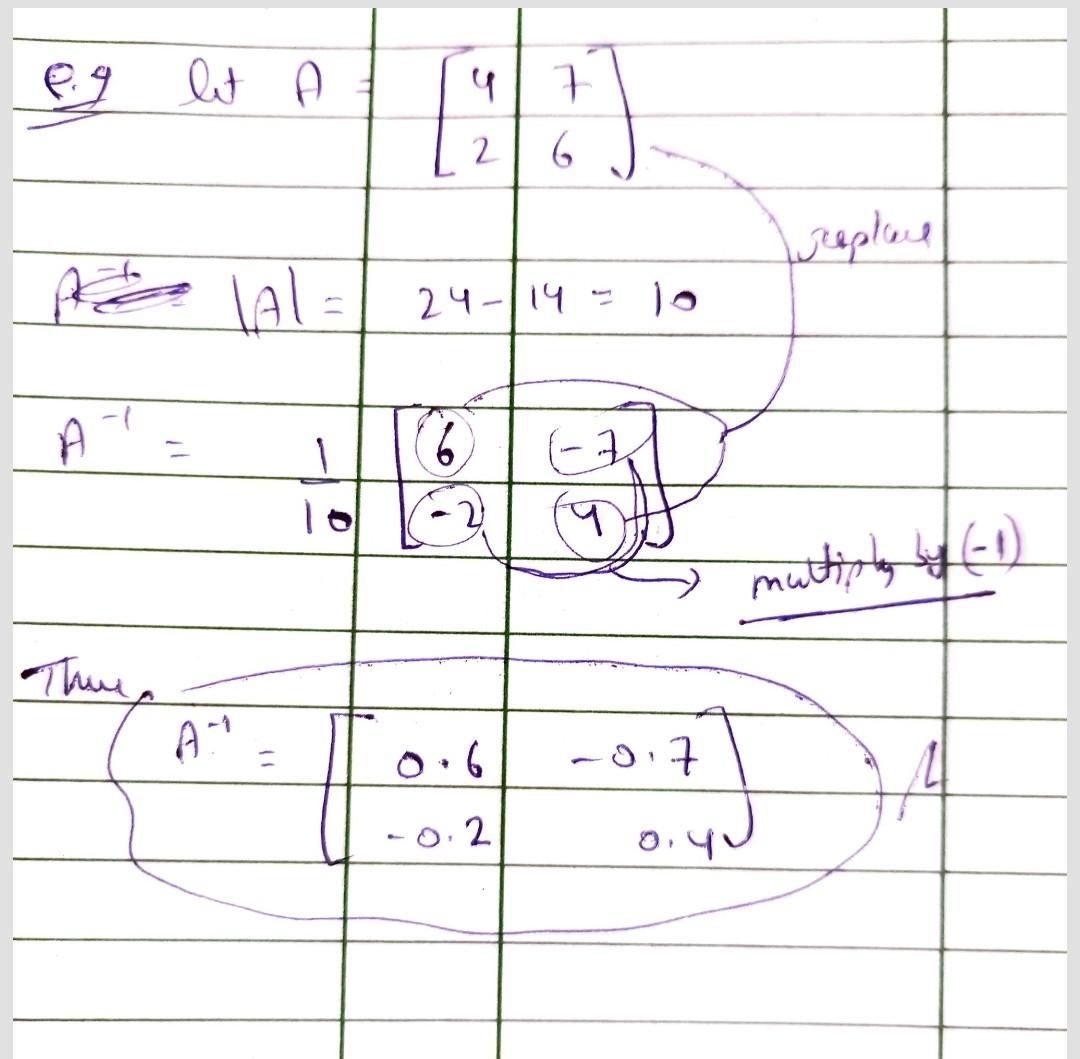 e.g let A = [4 7
2 6]
replace
|A| = 24 - 14 = 10
A⁻¹ = 1/10 [6 -7
-2 4]
multiply by (-1)
A⁻¹ = [0.6 -0.7
-0.2 0.4]